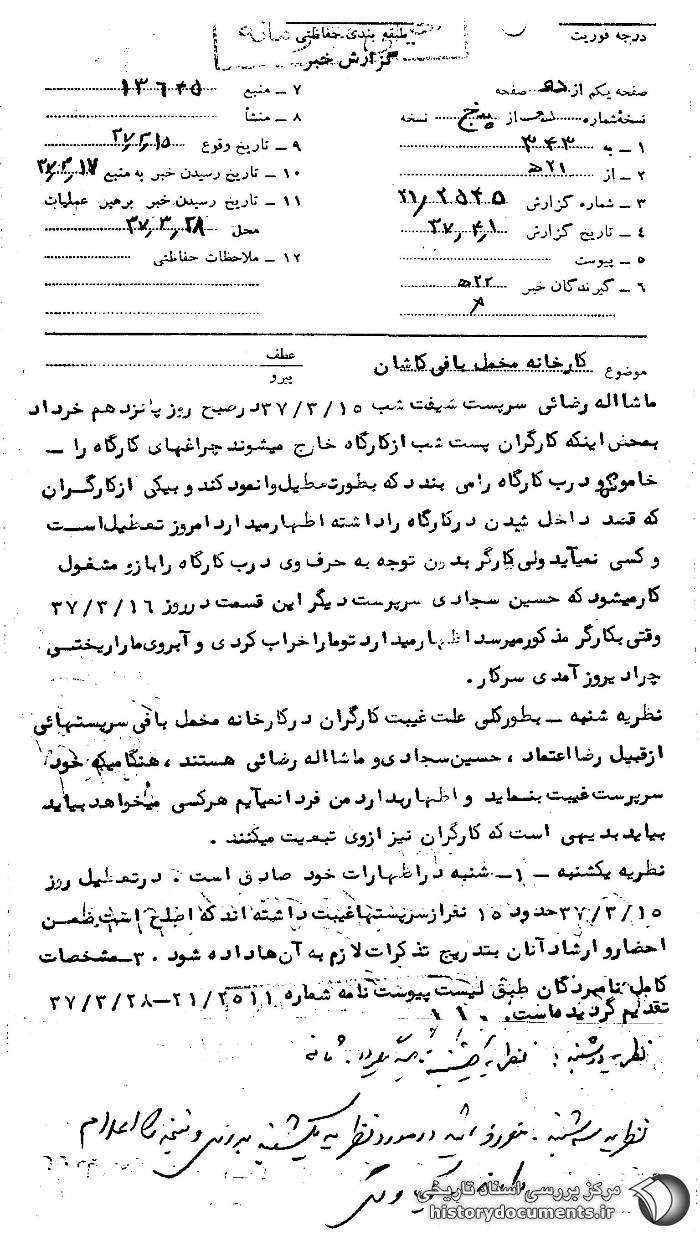 درجه فوریت
طبقه بندی حفاظتی
گزارش خبر
صفحه یکم از دو صفحه
نسخهٔ شماره از پنج نسخه
۱ – به ۳۴۳
۲ – از ۲۱ه
۳ – شماره گزارش ۲۱/۲۵۴۵
۴ – تاریخ گزارش ۳۷/۴/۱
۵ – پیوست
۶ – گیرندگان خبر ۲۲ه
۷ – منبع ۱۳۶۴۵
۸ – منشأ
۹ – تاریخ وقوع ۳۷/۳/۱۵
۱۰ – تاریخ رسیدن خبر به منبع ۳۷/۳/۱۷
۱۱ – تاریخ رسیدن خبر برهبر عملیات
محل ۳۷/۳/۲۸
۱۲ – ملاحظات حفاظتی
موضوع کارخانه مخمل بافی کاشان
عطف
پیرو
ماشااله رضائی سرپرست شیفت شب ۳۷/۳/۱۵ در صبح روز پانزدهم خرداد
بمحض اینکه کارگران پست شب ازکارگاه خارج میشوند چراغهای کارگاه را –
خاموش و درب کارگاه را می بندد که بطورتعطیل وانمود کند و بیکی ازکارگران
که قصد داخل شدن درکارگاه راداشته اظهارمیدارد امروز تعطیل است
و کسی نمیآید ولی کارگر بدون توجه به حرف وی درب کارگاه رابازو مشغول
کارمیشود که حسین سجادی سرپرست دیگر این قسمت درروز ۳۷/۳/۱۶
وقتی بکارگر مذکورمیرسد اظهارمیدارد توماراخراب کردی و آبروی ماراریختی
چرادیروز آمدی سرکار .
نظریه شنبه – بطورکلی علت غیبت کارگران درکارخانه مخمل بافی سرپستهائی
ازقبیل رضا اعتماد ، حسین سجادی و ماشااله رضائی هستند ، هنگامیکه خود
سرپرست غیبت بنماید و اظهاربدارد من فردا نمیآیم هرکسی میخواهد بیاید
بیاید بدیهی است که کارگران نیز ازوی تبعیت میکنند .
نظریه یکشنبه – ۱– شنبه دراظهارات خود صادق است . درتعطیل روز
۳۷/۳/۱۵ حدود ۱۵ نفراز سرپستها غیبت داشته اند که اصلح است ضمن
احضارو ارشاد آنان بتدریج تذکرات لازم به آن ها داده شود . ۳–مشخصات
کامل نامبردگان طبق لیست پیوست نامه شماره ۲۱/۲۵۱۱–۳۷/۳/۲۸
تقدیم گردیده است.
نظریه دوشنبه : نظریه یکشنبه
نظریه سه شنبه . در مورد نظریه یکشنبه بررسی و نتیجه را اعلام
مرکز بررسی اسناد تاریخی
historydocuments.ir